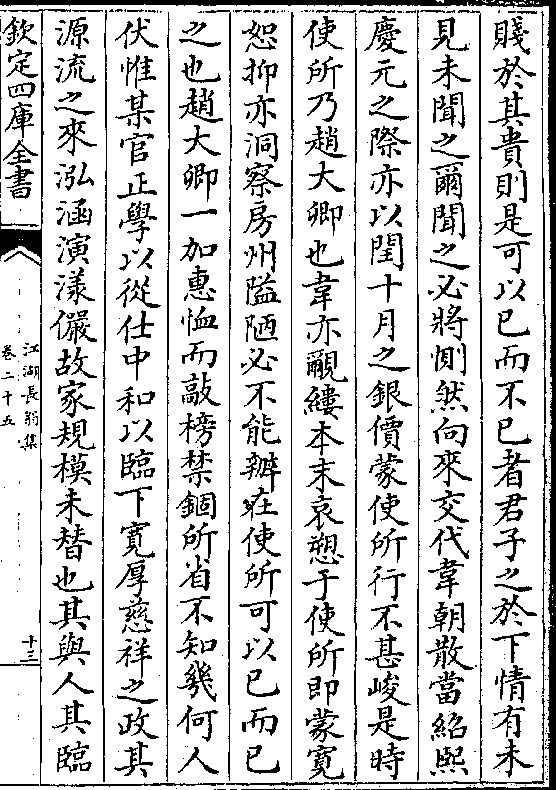 賤於其貴則是可以已而不已者君子之於下情有未
見未聞之爾聞之必將惻然向來交代韋朝散當紹熙
慶元之際亦以閏十月之銀價蒙使所行不甚峻是時
使所乃趙大卿也韋亦覼縷本末哀愬于使所即蒙寛
恕抑亦洞察房州隘陋必不能辦在使所可以已而已
之也趙大卿一加惠恤而敲榜禁錮所省不知幾何人
伏惟某官正學以從仕中和以臨下寛厚慈祥之政其
源流之來泓涵演漾儼故家規模未替也其與人其臨
欽定四庫全書
江湖長翁集
卷二十五
十三